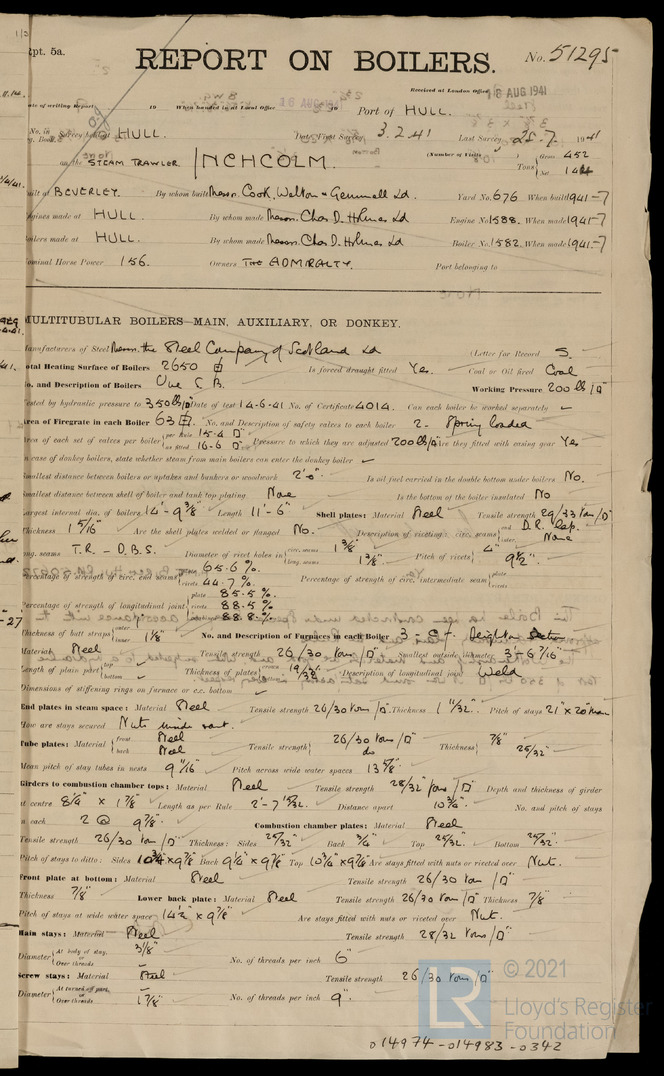 Rpt. 5a.
REPORT ON BOILERS.
No. 51295
Received at London Office 16 AUG 1941
Date of writing Report 19 When handed in at Local Office 19 Port of HULL.
No. in Reg. Book. Survey held at HULL. Date, First Survey 3.2.41 Last Survey 25-7- 1941
on the STEAM TRAWLER INCHCOLM. (Number of Visits ) Tons Gross 452 Net 144
Built at BEVERLEY. By whom built Messrs. Cook, Welton & Gemmell Ld. Yard No. 676 When built 1941-7
Engines made at HULL. By whom made Messrs. Chas D. Holmes Ld Engine No. 1588. When made 1941-7
Boilers made at HULL. By whom made Messrs. Chas D. Holmes Ld Boiler No. 1582. When made 1941-7
Nominal Horse Power 156. Owners THE ADMIRALTY. Port belonging to
MULTITUBULAR BOILERS MAIN, AUXILIARY, OR DONKEY.
Manufacturers of Steel Messrs. the Steel Company of Scotland Ld (Letter for Record S.
Total Heating Surface of Boilers 2650 Is forced draught fitted Yes. Coal or Oil fired Coal
No. and Description of Boilers One S.B. Working Pressure 200 lbs/□"
Tested by hydraulic pressure to 350 lbs/□" Date of test 14-6-41 No. of Certificate 4014. Can each boiler be worked separately ✓
Area of Firegrate in each Boiler 63 No. and Description of safety valves to each boiler 2- Spring loaded
Area of each set of valves per boiler per Rule 15.4 □" as fitted 16.6 □" Pressure to which they are adjusted 200 lb/□" Are they fitted with easing gear Yes
In case of donkey boilers, state whether steam from main boilers can enter the donkey boiler ✓
Smallest distance between boilers or uptakes and bunkers or woodwork 2'-0" Is oil fuel carried in the double bottom under boilers No.
Smallest distance between shell of boiler and tank top plating None Is the bottom of the boiler insulated No
Largest internal dia. of boilers 14'-9 3/8" Length 11'-6" Shell plates: Material Steel Tensile strength 29/33 tons/□"
Thickness 1 5/16" Are the shell plates welded or flanged No. Description of riveting: circ. seams end D.R. lap. inter. None
long. seams T.R.-D.B.S. Diameter of rivet holes in circ. seams 1 3/8" long. seams 1 3/8" Pitch of rivets 4" 9 1/2"
Percentage of strength of circ. end seams plate 65.6% rivets 44.7% Percentage of strength of circ. intermediate seam plate rivets
Percentage of strength of longitudinal joint plate 85.5% rivets 88.5% combined 88.8%
Thickness of butt straps outer inner 1 1/8" No. and Description of Furnaces in each Boiler 3 C.F. Deighton
Material Steel Tensile strength 26/30 tons/□" Smallest outside diameter 3'-6 7/16"
Length of plain part top bottom Thickness of plates crown bottom 19/32" Description of longitudinal joint Weld
Dimensions of stiffening rings on furnace or c.c. bottom ✓
End plates in steam space: Material Steel Tensile strength 26/30 tons/□" Thickness 1 11/32" Pitch of stays 21" x 20" mean
How are stays secured Nuts inside & out.
Tube plates: Material front Steel back Steel Tensile strength 26/30 tons/□" do Thickness 7/8" 25/32"
Mean pitch of stay tubes in nests 9 11/16" Pitch across wide water spaces 13 5/8"
Girders to combustion chamber tops: Material Steel Tensile strength 28/32 tons/□" Depth and thickness of girder
at centre 8 1/4" x 1 7/8" Length as per Rule 2'-7 15/32" Distance apart 10 3/4" No. and pitch of stays
in each 2 @ 9 7/8" Combustion chamber plates: Material Steel
Tensile strength 26/30 tons/□" Thickness: Sides 25/32" Back 3/4" Top 25/32" Bottom 25/32"
Pitch of stays to ditto: Sides 10 3/4 x 9 7/8 Back 9 1/4" x 9 7/8" Top 10 3/4" x 9 7/8" Are stays fitted with nuts or riveted over Nuts.
Front plate at bottom: Material Steel Tensile strength 26/30 tons/□"
Thickness 7/8" Lower back plate: Material Steel Tensile strength 26/30 tons/□" Thickness 7/8"
Pitch of stays at wide water space 14 1/2" x 9 7/8" Are stays fitted with nuts or riveted over Nuts.
Main stays: Material Steel Tensile strength 28/32 tons/□"
Diameter At body of stay, or Over threads 3 1/8" No. of threads per inch 6"
Screw stays: Material Steel Tensile strength 26/30 tons/□"
Diameter At turned off part, or Over threads 1 7/8" No. of threads per inch 9"
© 2021
LR
Lloyd's Register
Foundation
014974-014983-0342